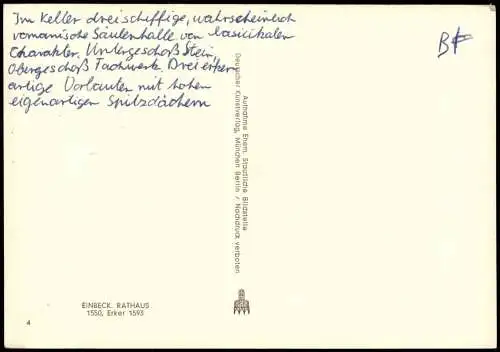 Im Keller dreischiffige, wahrscheinlich
romanische Säulenhalle von basilikalen
Charakter. Untergeschoß Stein,
Obergeschoß Fachwerk. Drei erker-
artige Vorbauten mit hohen
eigenartigen Spitzdächern
Aufnahme Ehem. Staatliche Bildstelle
Deutscher Kunstverlag, München Berlin / Nachdruck verboten
EINBECK. RATHAUS
1550, Erker 1593
4